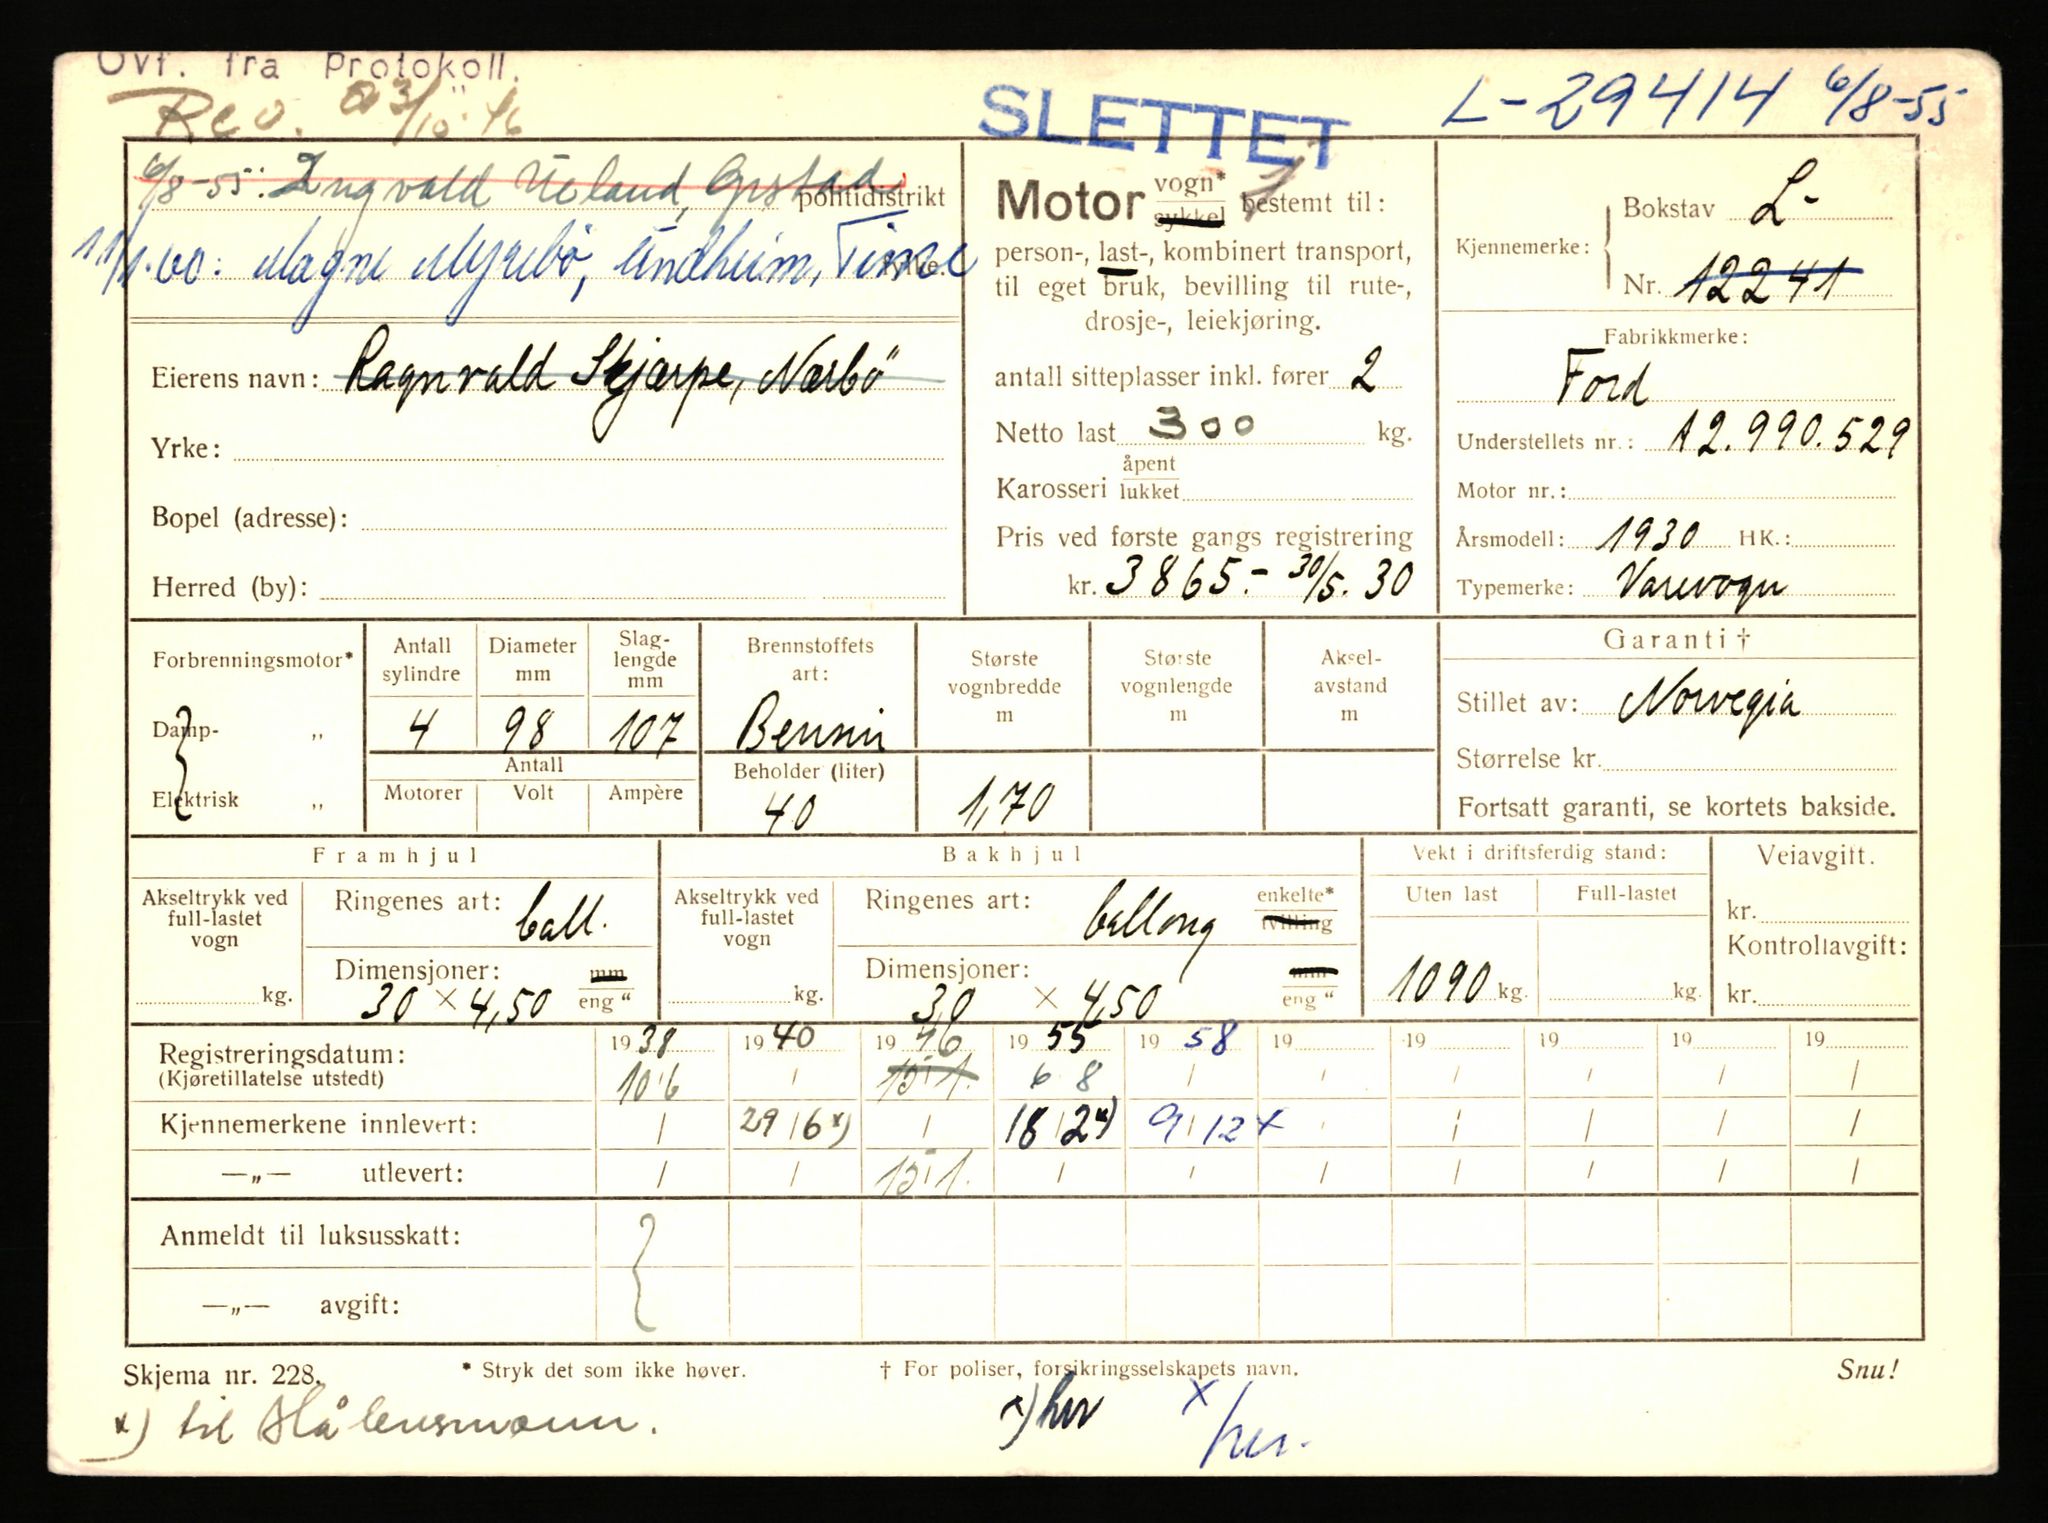 Ovf. fra Protokoll.
Rev. 23/10 46
SLETTET
L-29414 6/8-55
6/8-55: Ingvald Ueland, Grstad politidistrikt
11/1.60: Magne Myrebö, Undheim, Time yrke.
Eierens navn: Ragnvald Skjærpe, Nærbö
Yrke:
Bopel (adresse):
Herred (by):
Motor vogn* sykkel bestemt til:
person-, last-, kombinert transport,
til eget bruk, bevilling til rute-,
drosje-, leiekjøring.
antall sitteplasser inkl. fører 2
Netto last 300 kg.
Karosseri åpent lukket
Pris ved første gangs registrering
kr. 3865.- 30/5.30
Kjennemerke: Bokstav L-
Nr. 12241
Fabrikkmerke:
Ford
Understellets nr.: A2.990.529
Motor nr.:
Årsmodell: 1930 HK.:
Typemerke: Varevogn
Forbrenningsmotor*
Damp- „
Elektrisk „
Antall sylindre 4
Diameter mm 98
Slaglengde mm 107
Antall
Motorer Volt Ampère
Brennstoffets art: Bensin
Beholder (liter) 40
Største vognbredde m 1,70
Største vognlengde m
Akselavstand m
Garanti †
Stillet av: Norvegia
Størrelse kr.
Fortsatt garanti, se kortets bakside.
Framhjul
Akseltrykk ved full-lastet vogn kg.
Ringenes art: ball.
Dimensjoner: 30 × 4,50 mm eng "
Bakhjul
Akseltrykk ved full-lastet vogn kg.
Ringenes art: ballong enkelte* tvilling
Dimensjoner: 30 × 4,50 mm eng "
Vekt i driftsferdig stand:
Uten last Full-lastet
1090 kg. kg.
Veiavgitt.
kr.
Kontrollavgift:
kr.
Registreringsdatum: 1938 1940 1946 1955 1958 19 19 19 19 19
(Kjøretillatelse utstedt) 10/6 / 15/1. 6 8 / / / / / /
Kjennemerkene innlevert: / 29/6 x) / 18/2 x) 9/12 x / / / / /
—„— utlevert: / / 15/1. / / / / / / /
Anmeldt til luksusskatt:
—„— avgift:
Skjema nr. 228.
* Stryk det som ikke høver.
† For poliser, forsikringsselskapets navn.
Snu!
x) til Hå lensmann.
x) her
x/ her.